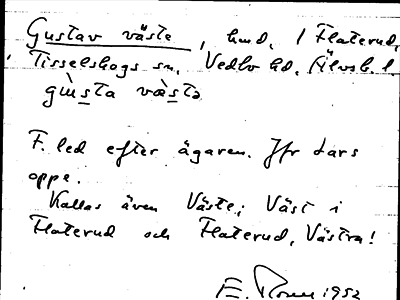 Gustav väste, hmd. i Flaterud,
Tisselskogs sn, Vedbo hd, Älvsb. l.
gùsta vàsta
F. led efter ägaren. Jfr Lars
oppe.
Kallas även Väste; Väst i
Flaterud och Flaterud, Västra!
E. 1952